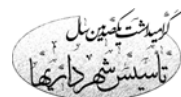 گرامیداشت یکصدمین سال
تاسیس شهرداریها